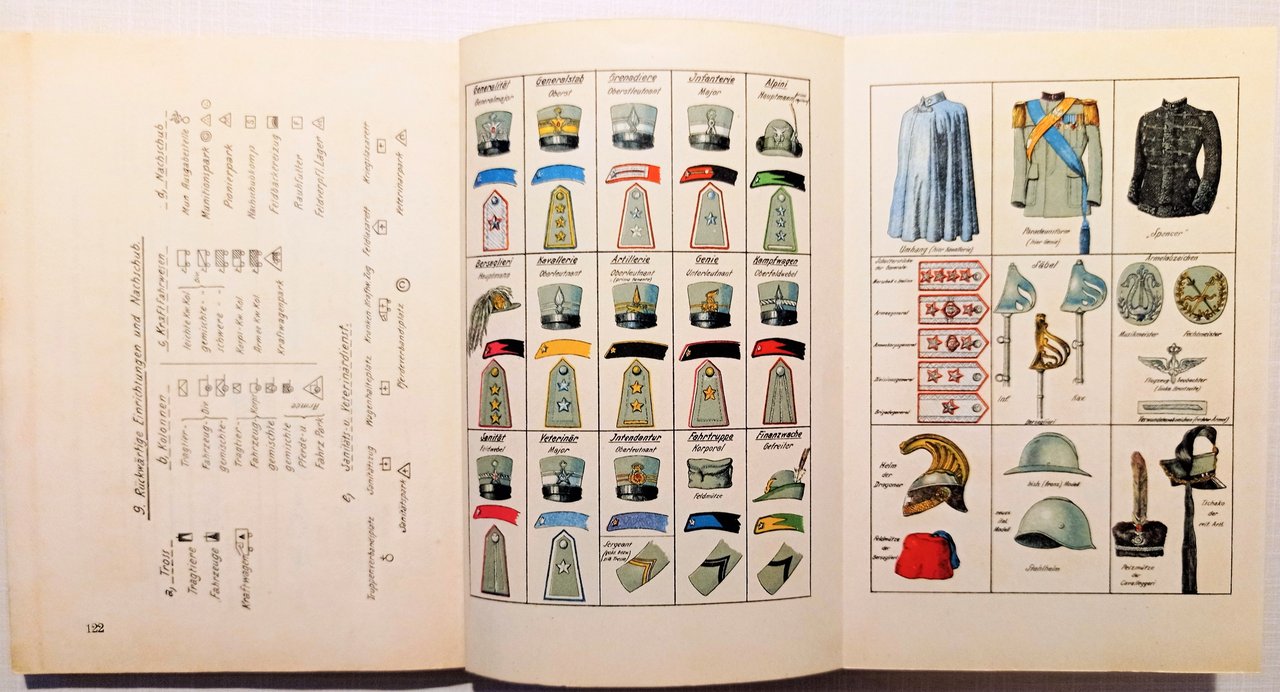 9. Rückwärtige Einrichtungen und Nachschub.
a, Tross
Tragtiere
Fahrzeuge
Kraftwagen
b, Kolonnen
Tragtier-
Fahrzeug-
gemischte-
Tragtier-
Fahrzeug-
gemischte
gemischte
Pferde-u.
Fahrz. Park
Div.
Korps
Armee
c, Kraftfahrwesen
leichte Kw. Kol.
gemischte
schwere
Korps Kw. Kol.
Armee Kw. Kol.
Kraftwagenpark
d, Nachschub
Mun. Ausgabestelle
Munitionspark
Pionierpark
Feldbäckereizug
e, Sanitäts u. Veterinärdienst.
Truppenverbandplatz
Sanitätszug
Wagenhalteplatz
Feldlazarett
Kriegslazarett
Sanitätspark
Pferdeverbandplatz
Veterinärpark
122
Generalität
Generalmajor
Generalstab
Oberst
Grenadiere
Oberstleutnant
Infanterie
Major
Alpini
Hauptmann
Bersaglieri
Hauptmann
Kavallerie
Oberleutnant
Artillerie
Oberleutnant
(primo tenente)
Genie
Unterleutnant
Kampfwagen
Oberfeldwebel
Sanität
Feldwebel
Veterinär
Major
Intendantur
Oberleutnant
Fahrtruppe
Korporal
Feldmütze
Finanzwache
Gefreiter
Sergeant
Umhang (hier Kavallerie)
Paradeuniform
(hier Genie)
„Spencer“
Schulterstücke
der Generale:
Marschall v. Italien
Armeegeneral
Armeekorpsgeneral
Divisionsgeneral
Brigadegeneral
Säbel
Inf.
Bersaglieri
Kav.
Ärmelabzeichen
Musikmeister
Fechtmeister
Flugzeug beobachter
(linke Brustseite)
Helm
der
Dragoner
Feldmütze
der
Bersaglieri
bish. (franz.) Modell
neues
ital.
Modell
Stahlhelm
Pelzmütze
der
Cavalleggeri
Tschako
der
reit. Artl.